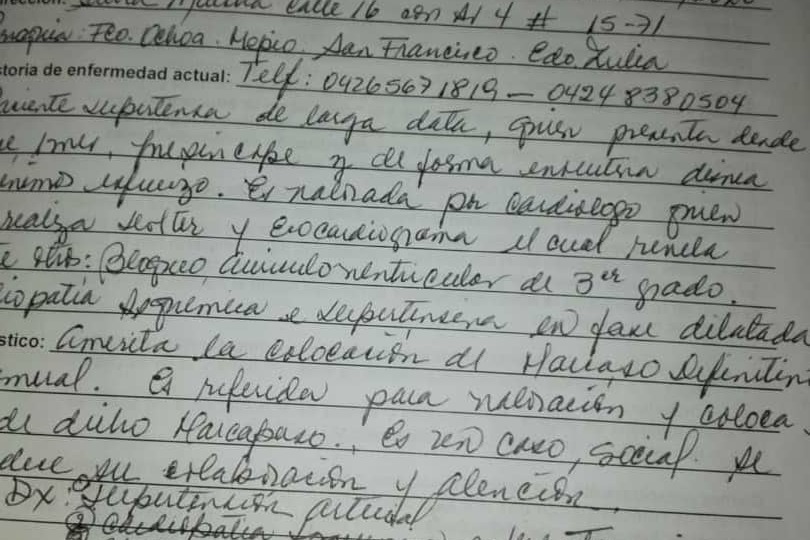 calle 16 con Av 4 # 15-71
Fco. Ochoa. Mcpio. San Francisco. Edo. Zulia
storia de enfermedad actual: Telf: 04265671819 - 04248380504
hipertensa de larga data, quien presenta desde
1 mes, y de forma disnea
esfuerzo. Es valorada por cardiologo quien
realiza Holter y Ecocardiograma el cual revela
otros: Bloqueo Auriculoventricular de 3er grado.
iopatia Isquemica e Hipertensiva en fase dilatada
stico: Amerita la colocación de Marcapaso Definitiv
Es referida para valoración y coloca
de dicho Marcapaso. Es un caso social. Se
su colaboración y atención.
Dx: Hipertensión arterial
② cardiopatia